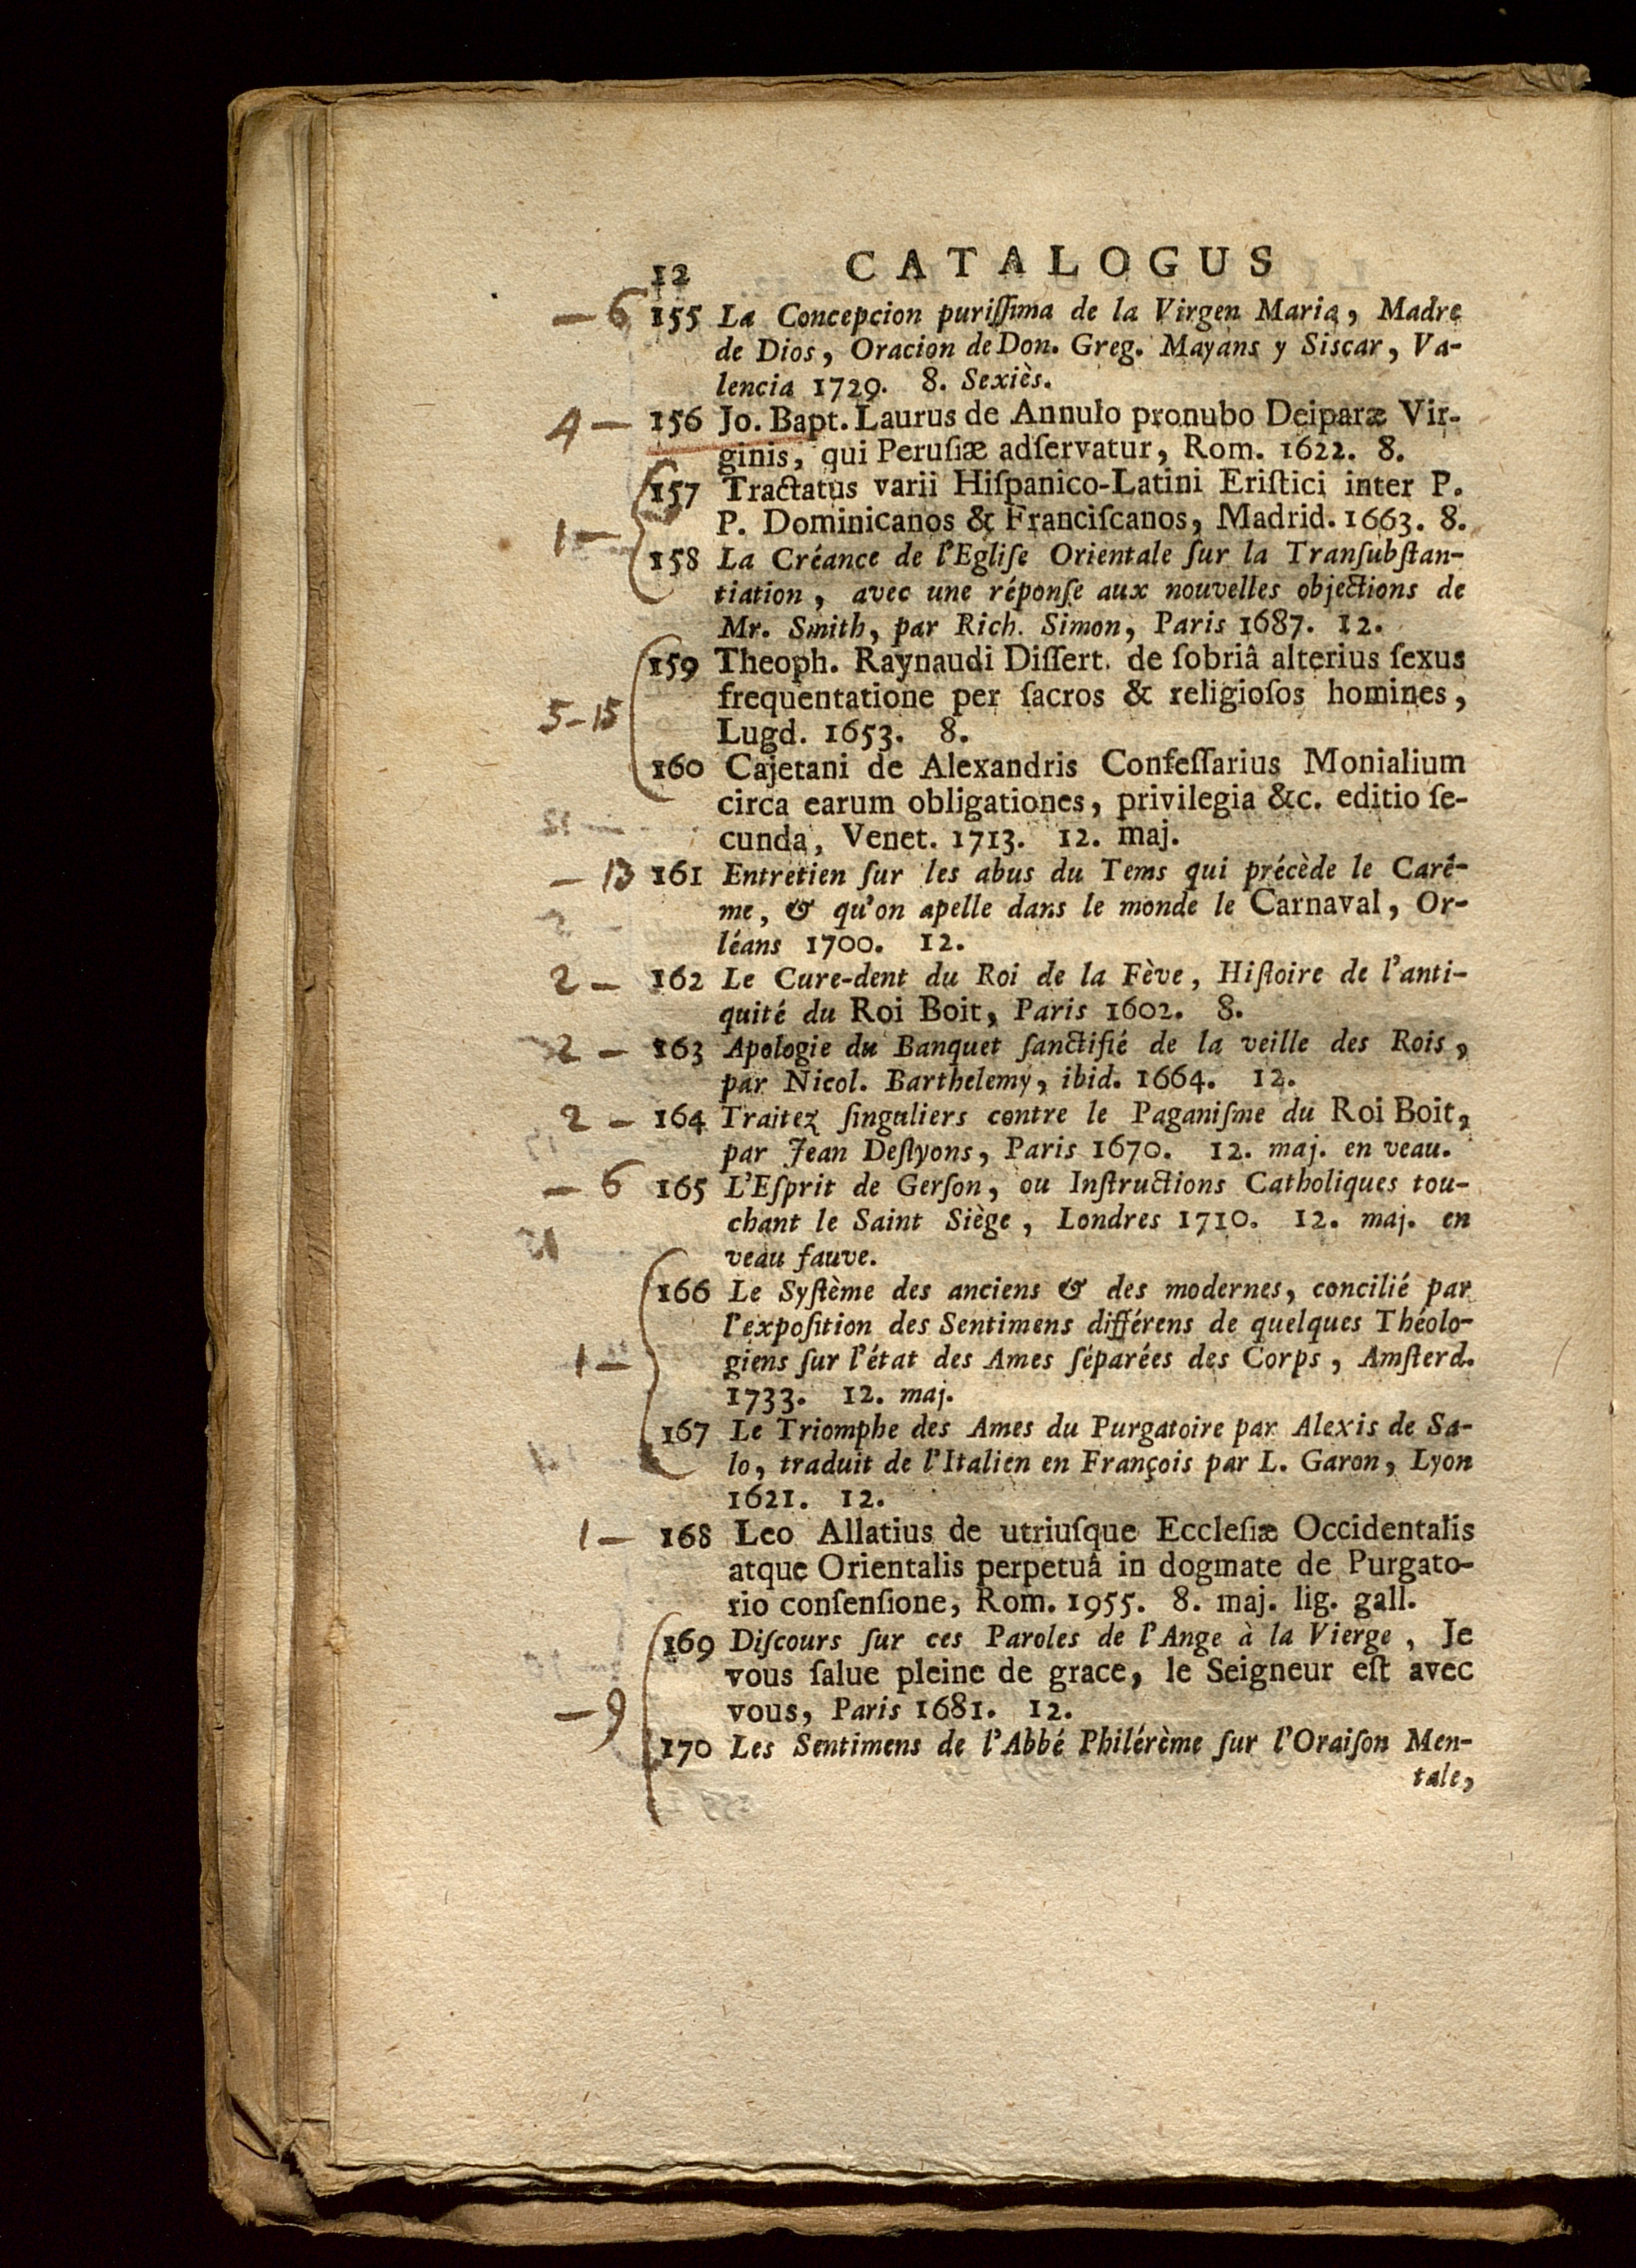 12 CATALOGUS
— 6 155 La Concepcion puriſſima de la Virgen Maria, Madre
de Dios, Oracion de Don. Greg. Mayans y Siscar, Va-
lencia 1729. 8. Sexiès.
4 — 156 Jo. Bapt. Laurus de Annulo pronubo Deiparæ Vir-
ginis, qui Peruſiæ adſervatur, Rom. 1622. 8.
157 Tractatus varii Hiſpanico-Latini Eriſtici inter P.
1 — P. Dominicanos & Franciſcanos, Madrid. 1663. 8.
158 La Créance de l'Egliſe Orientale ſur la Tranſubſtan-
tiation, avec une réponſe aux nouvelles objections de
Mr. Smith, par Rich. Simon, Paris 1687. 12.
159 Theoph. Raynaudi Diſſert. de ſobriâ alterius ſexus
frequentatione per ſacros & religioſos homines,
5 - 15 Lugd. 1653. 8.
160 Cajetani de Alexandris Confeſſarius Monialium
circa earum obligationes, privilegia &c. editio ſe-
cunda, Venet. 1713. 12. maj.
— 13 161 Entretien ſur les abus du Tems qui précède le Carê-
me, & qu'on apelle dans le monde le Carnaval, Or-
léans 1700. 12.
2 — 162 Le Cure-dent du Roi de la Fève, Hiſtoire de l'anti-
quité du Roi Boit, Paris 1602. 8.
2 — 163 Apologie du Banquet ſanctifié de la veille des Rois,
par Nicol. Barthelemy, ibid. 1664. 12.
2 — 164 Traitez ſinguliers contre le Paganiſme du Roi Boit,
par Jean Deſlyons, Paris 1670. 12. maj. en veau.
— 6 165 L'Eſprit de Gerſon, ou Inſtructions Catholiques tou-
chant le Saint Siège, Londres 1710. 12. maj. en
veau fauve.
166 Le Syſtème des anciens & des modernes, concilié par
l'expoſition des Sentimens différens de quelques Théolo-
1 — giens ſur l'état des Ames ſéparées des Corps, Amſterd.
1733. 12. maj.
167 Le Triomphe des Ames du Purgatoire par Alexis de Sa-
lo, traduit de l'Italien en François par L. Garon, Lyon
1621. 12.
1 — 168 Leo Allatius de utriuſque Eccleſiæ Occidentalis
atque Orientalis perpetuâ in dogmate de Purgato-
rio conſenſione, Rom. 1955. 8. maj. lig. gall.
169 Diſcours ſur ces Paroles de l'Ange à la Vierge, Je
vous ſalue pleine de grace, le Seigneur eſt avec
— 9 vous, Paris 1681. 12.
170 Les Sentimens de l'Abbé Philérème ſur l'Oraiſon Men-
tale,